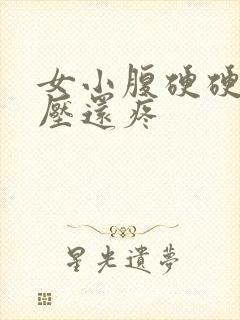 女小腹硬硬
壓還疼
星光遺夢